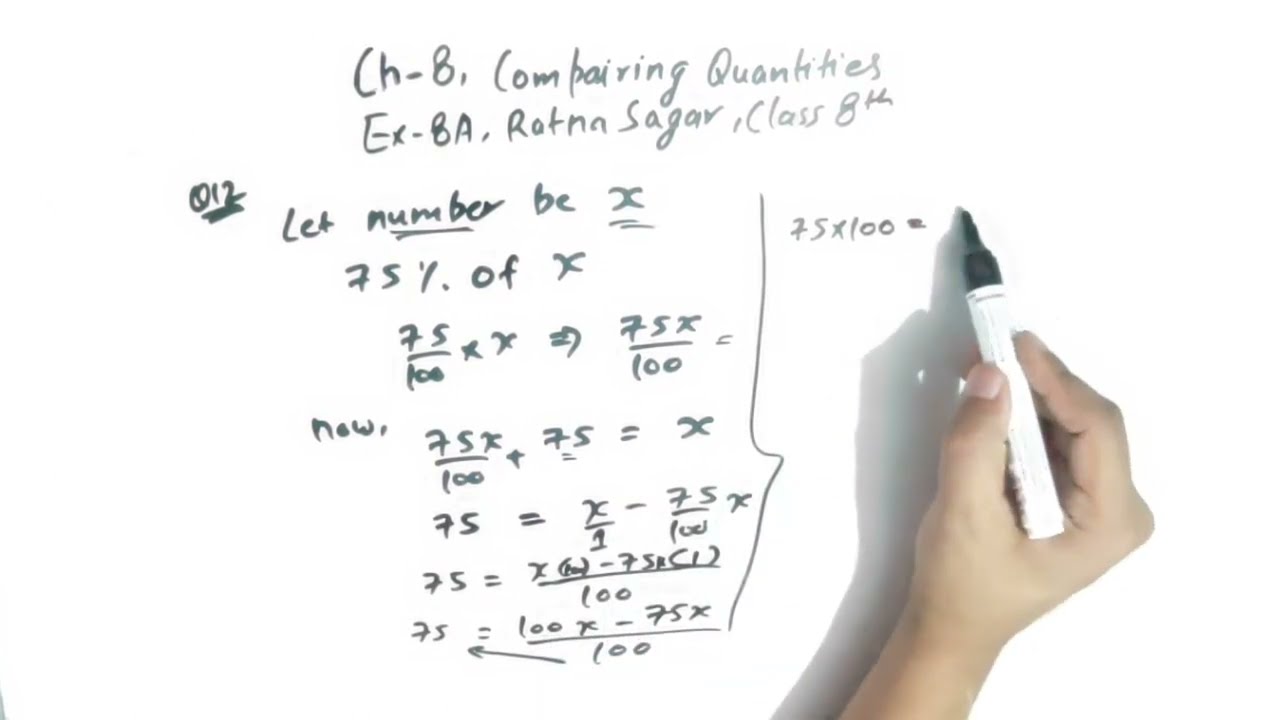 Ch-8, Compairing Quantities
Ex-8A, Ratna Sagar, Class 8th
Q12 Let number be x
75% of x
75/100 × x ⇒ 75x/100 =
now, 75x/100 + 75 = x
75 = x/1 - 75/100 x
75 = x(100) - 75x(1)/100
75 = 100x - 75x/100
75×100 =